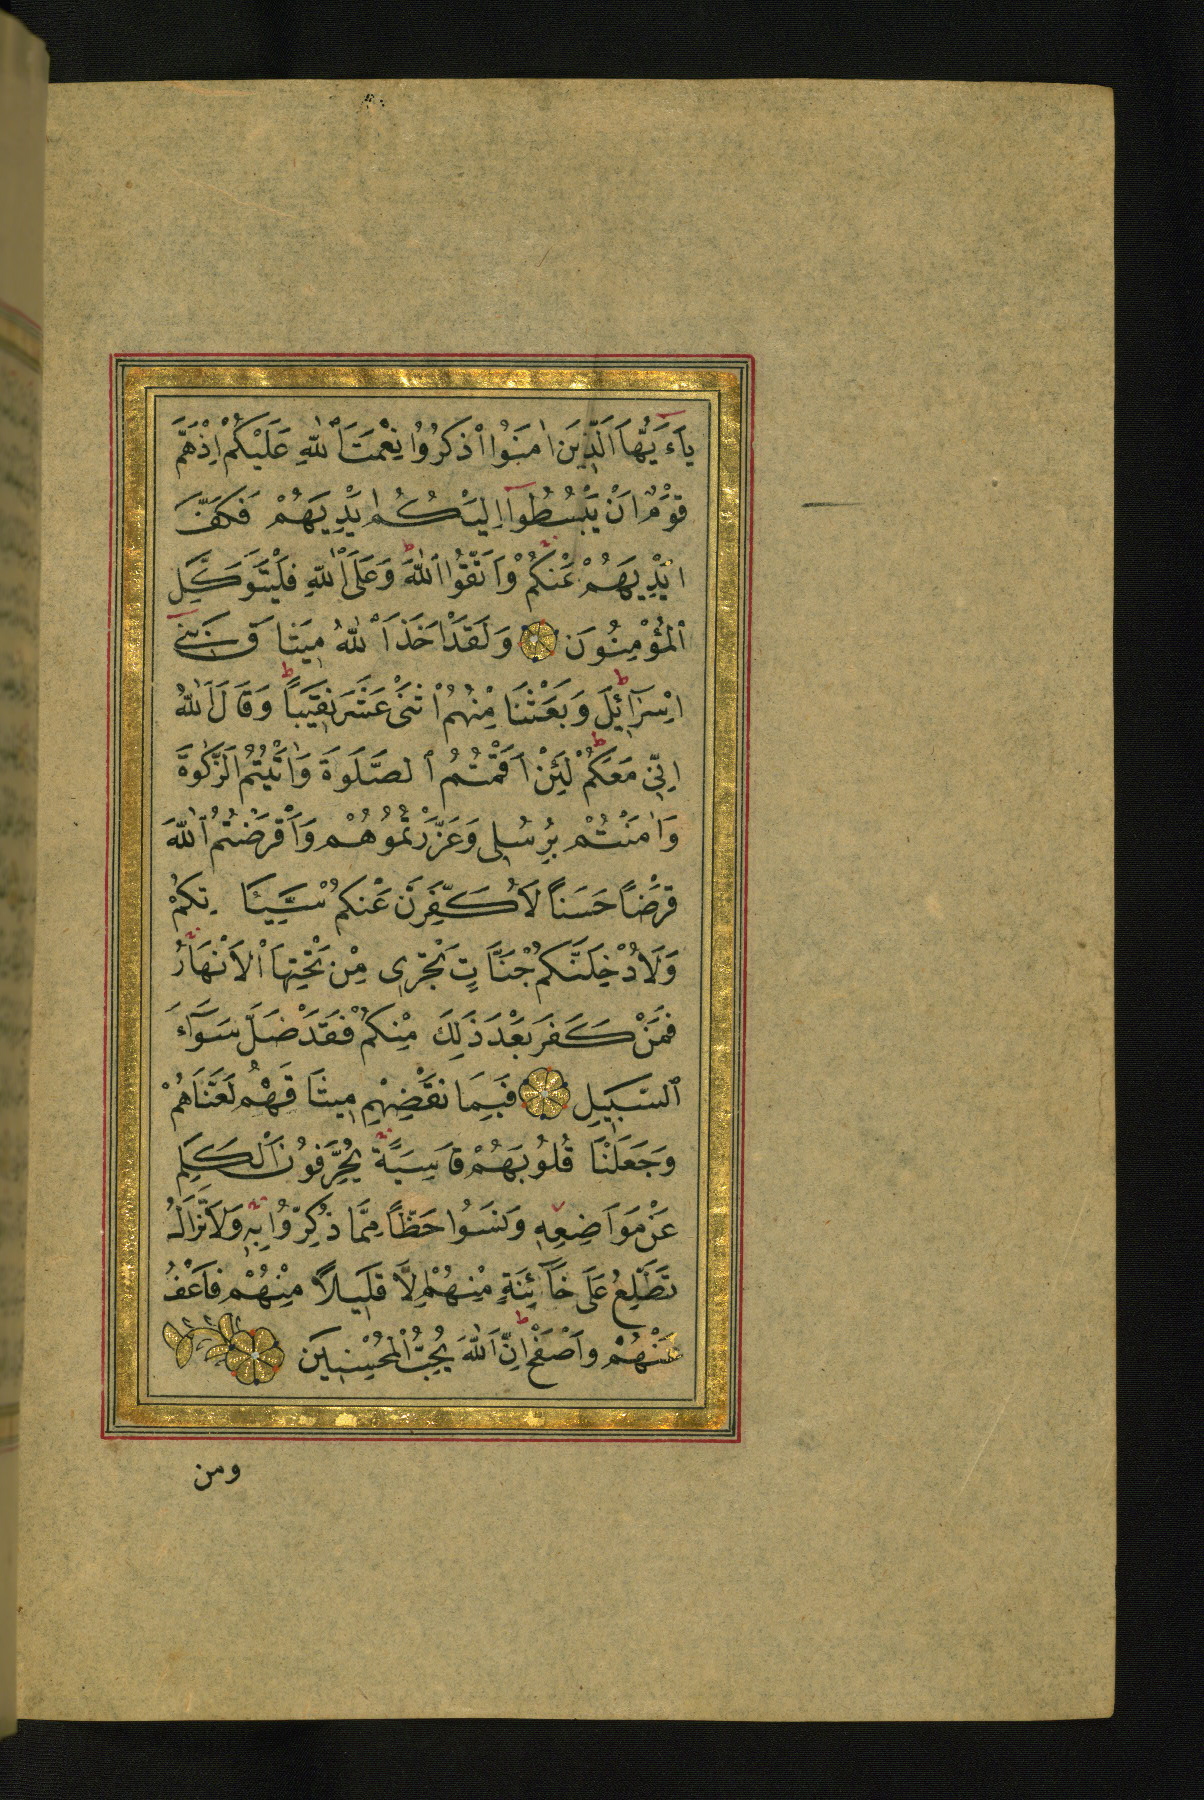 يَاءَيُّهَا الَّذِينَ اٰمَنُوا اذْكُرُوا نِعْمَتَ اللّٰهِ عَلَيْكُمْ اِذْ هَمَّ
قَوْمٌ اَنْ يَبْسُطُوٓا اِلَيْكُمْ اَيْدِيَهُمْ فَكَفَّ
اَيْدِيَهُمْ عَنْكُمْ وَاتَّقُوا اللّٰهَ ط وَعَلَى اللّٰهِ فَلْيَتَوَكَّلِ
الْمُؤْمِنُونَ وَلَقَدْ اَخَذَ اللّٰهُ مِيثَاقَ بَنِيٓ
اِسْرَآئِلَ ط وَبَعَثْنَا مِنْهُمُ اثْنَيْ عَشَرَ نَقِيبًا ط وَقَالَ اللّٰهُ
اِنِّي مَعَكُمْ ط لَئِنْ اَقَمْتُمُ الصَّلٰوةَ وَاٰتَيْتُمُ الزَّكٰوةَ
وَاٰمَنْتُمْ بِرُسُلِي وَعَزَّرْتُمُوهُمْ وَاَقْرَضْتُمُ اللّٰهَ
قَرْضًا حَسَنًا لَاُكَفِّرَنَّ عَنْكُمْ سَيِّئَاتِكُمْ
وَلَاُدْخِلَنَّكُمْ جَنَّاتٍ تَجْرِي مِنْ تَحْتِهَا الْاَنْهَارُ
فَمَنْ كَفَرَ بَعْدَ ذٰلِكَ مِنْكُمْ فَقَدْ ضَلَّ سَوَآءَ
السَّبِيلِ فَبِمَا نَقْضِهِمْ مِيثَاقَهُمْ لَعَنَّاهُمْ
وَجَعَلْنَا قُلُوبَهُمْ قَاسِيَةً يُحَرِّفُونَ الْكَلِمَ
عَنْ مَوَاضِعِهِ وَنَسُوا حَظًّا مِمَّا ذُكِّرُوا بِهِ وَلَا تَزَالُ
تَطَّلِعُ عَلَى خَآئِنَةٍ مِنْهُمْ اِلَّا قَلِيلًا مِنْهُمْ فَاعْفُ
عَنْهُمْ وَاصْفَحْ ط اِنَّ اللّٰهَ يُحِبُّ الْمُحْسِنِينَ
ومن